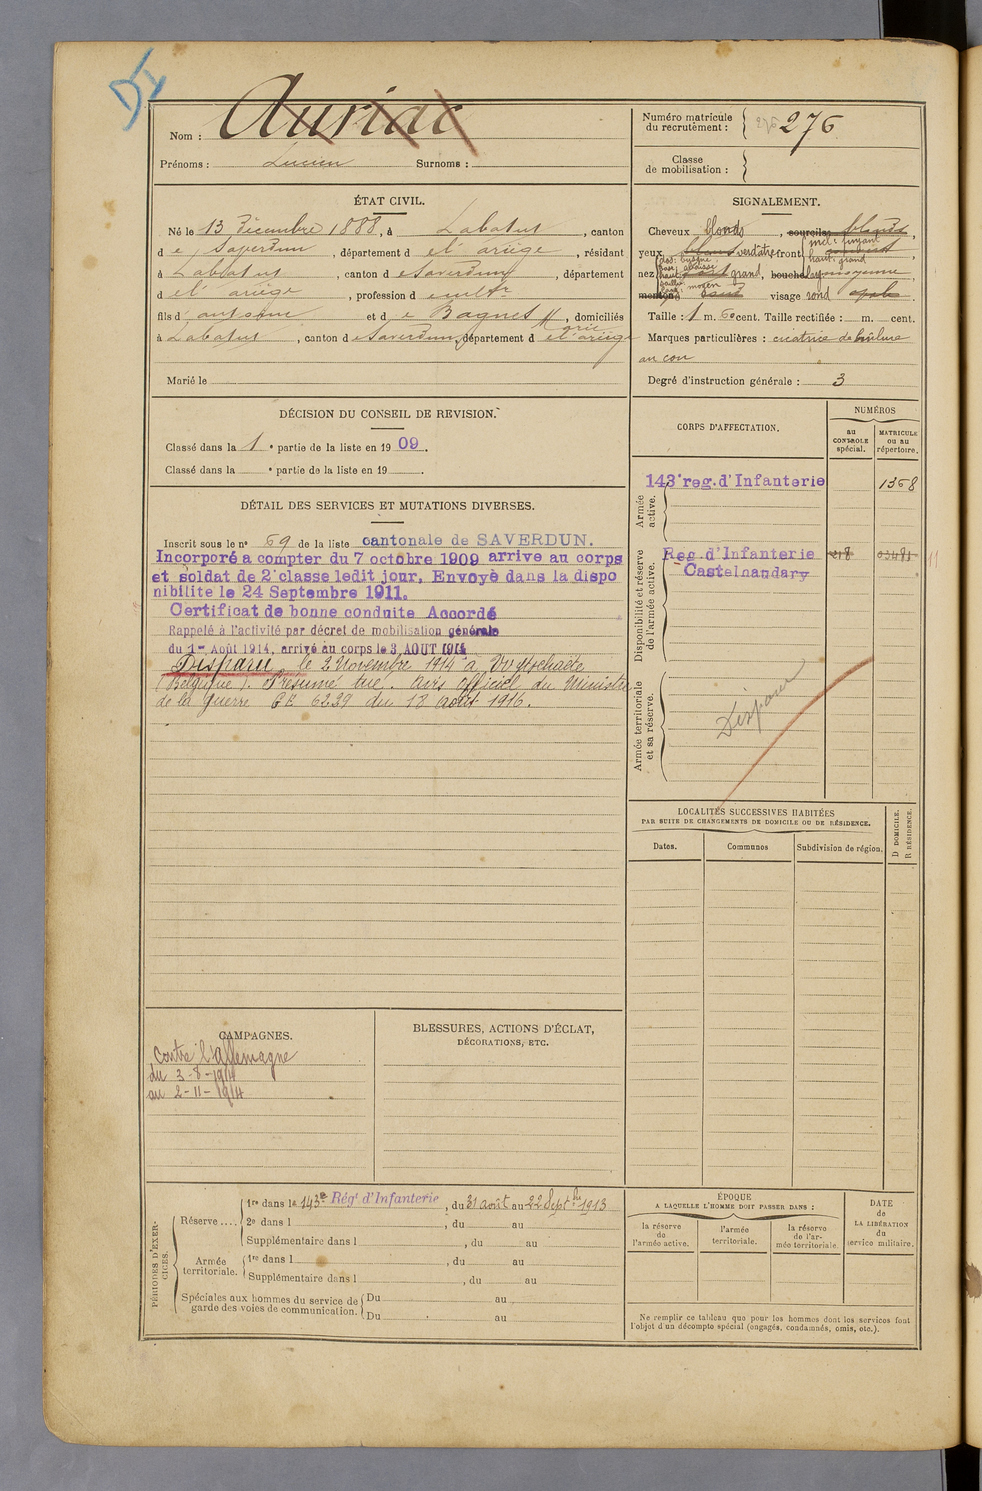 DI
Nom : Auriac
Prénoms : Lucien Surnoms :
Numéro matricule du recrutement : 276 276
Classe de mobilisation :
ÉTAT CIVIL.
Né le 13 Décembre 1888, à Labatut, canton
de Saverdun, département de l'ariège, résidant
à Labatut, canton de Saverdun, département
de l'ariège, profession de cultr
fils d'antoine et de Bagnet Marie, domiciliés
à Labatut, canton de Saverdun, département de l'ariège
Marié le
SIGNALEMENT.
Cheveux blonds, sourcils blonds,
yeux verdâtre front incl: fuyant haut: grand
nez dos: busqué base: haut: saillie: larg: moyen grand, bouche moyenne,
menton rond visage rond
Taille : 1 m. 60 cent. Taille rectifiée : m. cent.
Marques particulières : cicatrice de brûlure
au cou
Degré d'instruction générale : 3
DÉCISION DU CONSEIL DE REVISION.
Classé dans la 1e partie de la liste en 1909.
Classé dans la e partie de la liste en 19 .
DÉTAIL DES SERVICES ET MUTATIONS DIVERSES.
Inscrit sous le n° 69 de la liste cantonale de SAVERDUN.
Incorporé a compter du 7 octobre 1909 arrive au corps
et soldat de 2e classe ledit jour. Envoyé dans la dispo
nibilite le 24 Septembre 1911.
Certificat de bonne conduite Accordé
Rappelé à l'activité par décret de mobilisation générale
du 1er Août 1914, arrivé au corps le 3 AOUT 1914
Disparu le 2 Novembre 1914 à Wytschaete
(Belgique). Présumé tué. Avis officiel du Ministre
de la Guerre G E 6239 du 18 août 1916.
CORPS D'AFFECTATION.
NUMÉROS
au CONTROLE spécial.
MATRICULE ou au répertoire.
Armée active.
143e reg. d'Infanterie 1368
Disponibilité et réserve de l'armée active.
Reg. d'Infanterie 218 03491
Castelnaudary
Armée territoriale et sa réserve.
Disparu
LOCALITÉS SUCCESSIVES HABITÉES
PAR SUITE DE CHANGEMENTS DE DOMICILE OU DE RÉSIDENCE.
Dates. Communes Subdivision de région. D DOMICILE. R RÉSIDENCE.
CAMPAGNES.
Contre l'allemagne
du 3-8-1914
au 2-11-1914
BLESSURES, ACTIONS D'ÉCLAT,
DÉCORATIONS, ETC.
PÉRIODES D'EXERCICES.
Réserve ....
1re dans le 143e Régt d'Infanterie, du 31 août au 22 Septbre 1913
2e dans l , du au
Supplémentaire dans l , du au
Armée territoriale.
1re dans l , du au
Supplémentaire dans l , du au
Spéciales aux hommes du service de garde des voies de communication.
Du au
Du au
ÉPOQUE
A LAQUELLE L'HOMME DOIT PASSER DANS :
la réserve de l'armée active.
l'armée territoriale.
la réserve de l'armée territoriale.
DATE de LA LIBÉRATION du service militaire.
Ne remplir ce tableau que pour les hommes dont les services font
l'objet d'un décompte spécial (engagés, condamnés, omis, etc.).